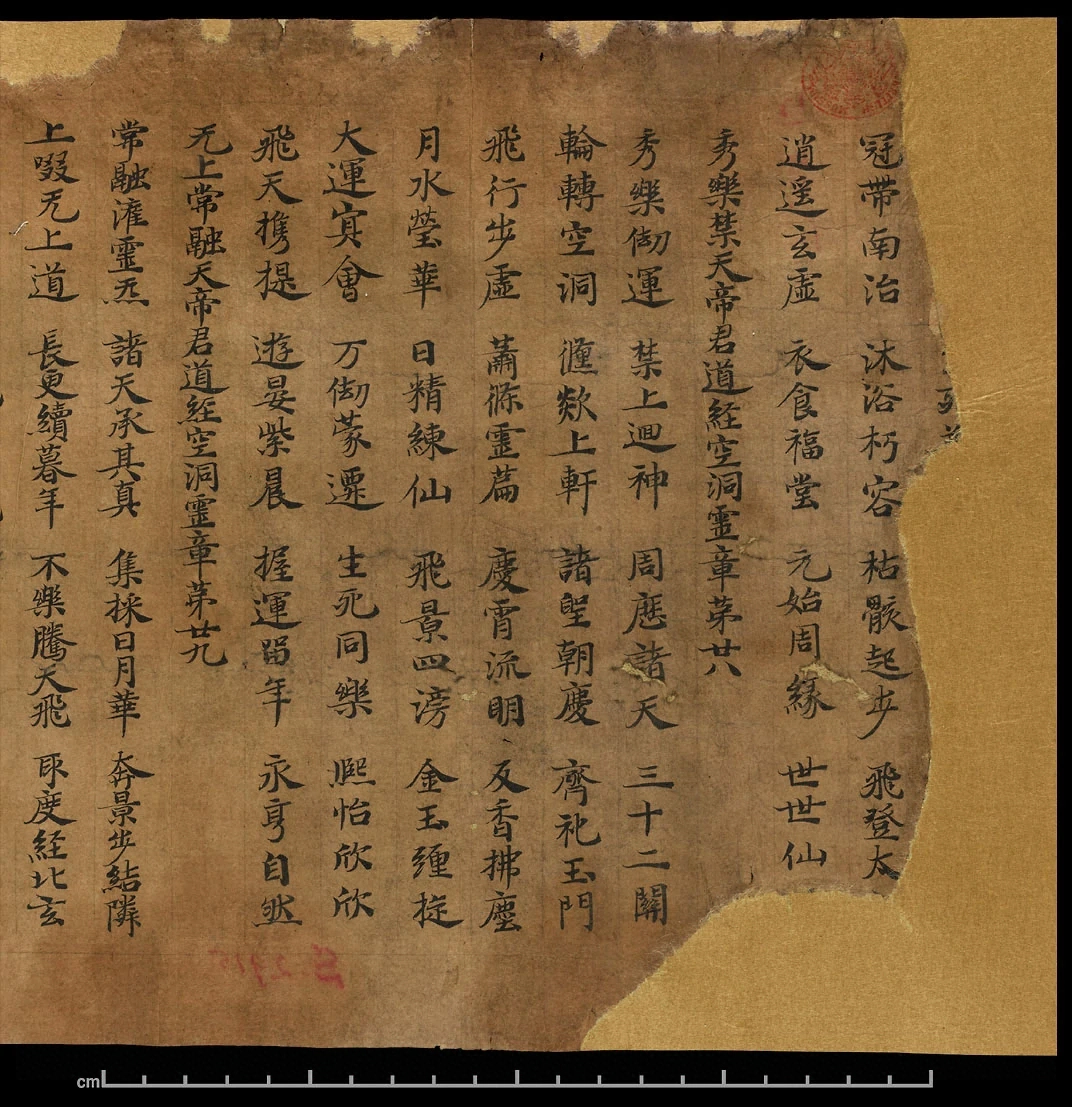 冠帶南治 沐浴朽容 枯骸起步 飛登太
逍遥玄虛 衣食福堂 元始周緣 世世仙
秀樂禁天帝君道經空洞靈章苐廿八
秀樂刼運 禁上迴神 周應諸天 三十二關
輪轉空洞 儵欻上軒 諸聖朝慶 齊礼玉門
飛行步虛 蕭條靈篇 慶霄流明 反香拂塵
月水瑩華 日精練仙 飛景四滂 金玉纏挻
大運冥會 万刼蒙遷 生死同樂 熙怡欣欣
飛天攜提 遊晏紫晨 握運留年 永享自然
无上常融天帝君道經空洞靈章苐廿九
常融灌靈炁 諸天承其真 集採日月華 奔景步結隣
上啜无上道 長更續暮年 不樂騰天飛 取度經北玄
S.2915
cm